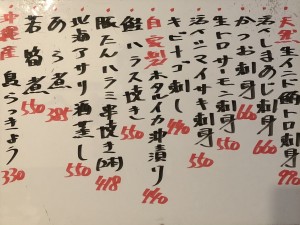 天然生インド鮪トロ刺身 990
活〆しまあじ刺身 660
かつお刺身 660
生トロサーモン刺身 550
活〆イサキ刺身 550
キビナゴ刺し 440
自家製ホタルイカ沖漬り 440
鮭ハラス焼き 550
豚たんハラミ串焼き(2本) 418
北海アサリ酒蒸し 550
あら煮 385
若筍煮 550
沖縄産島らっきょう 330